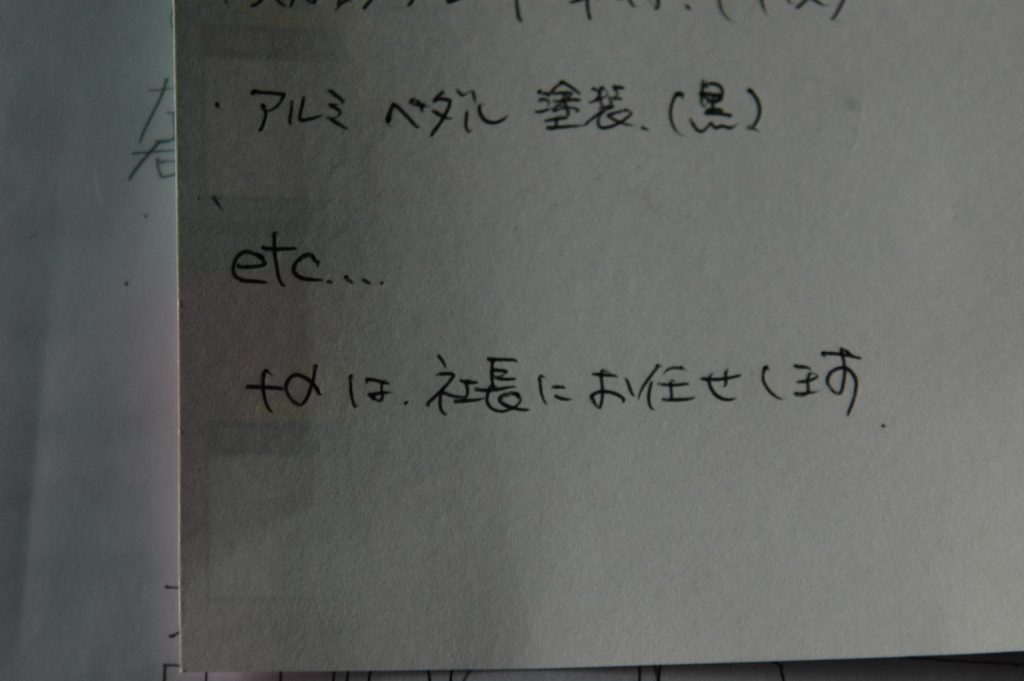 ・アルミ ペダル 塗装.(黒)
etc....
+αは.社長にお任せします.